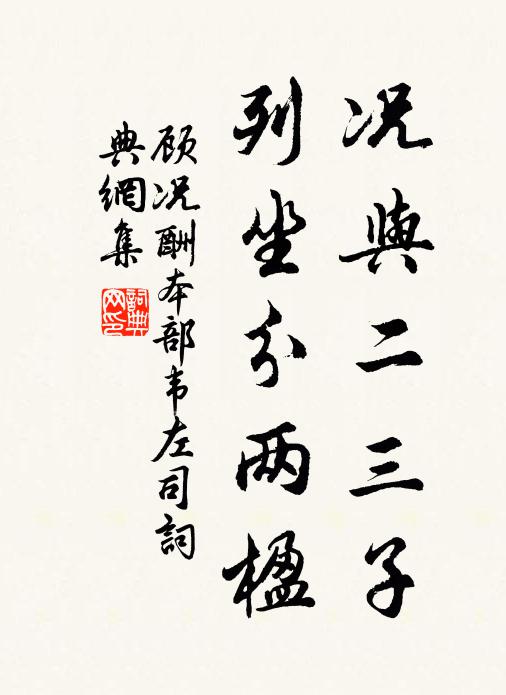 况與二三子
列坐分两楹
顾况酬本部韦左司詞
典網集
詞典网印